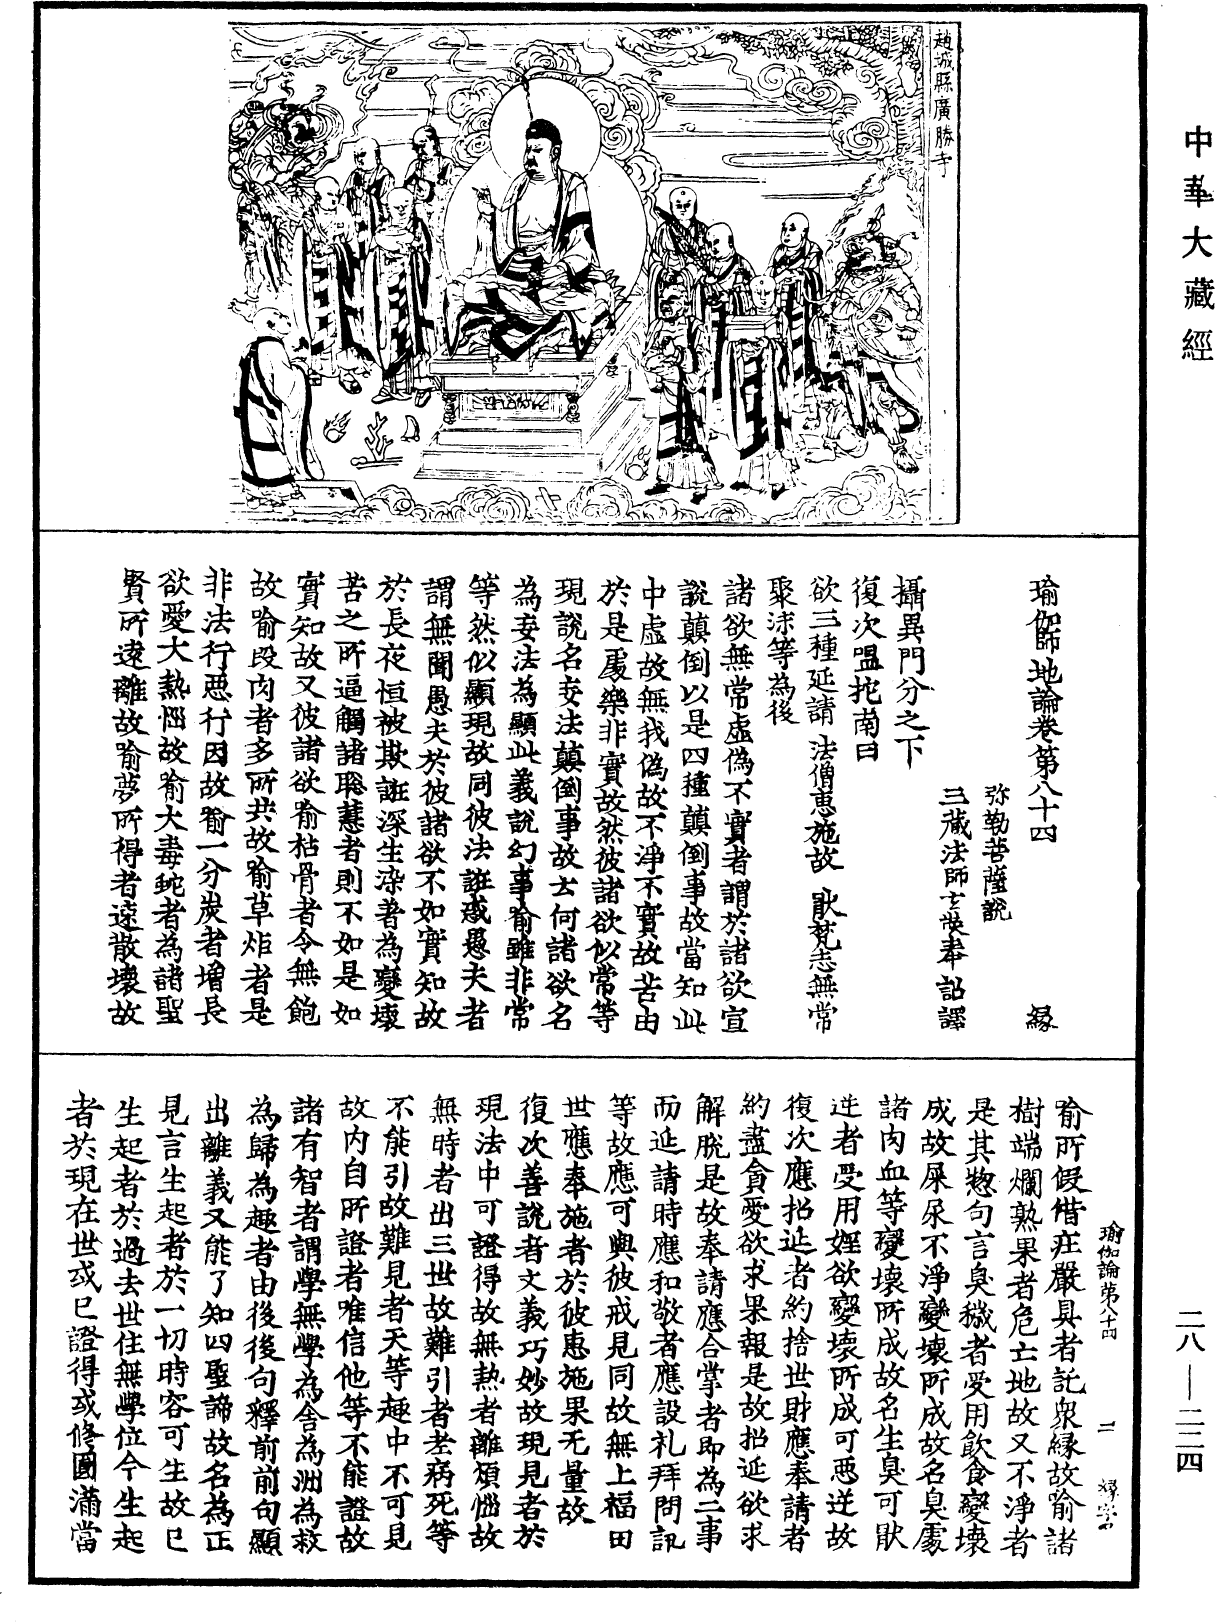 中華大藏經
趙城縣廣勝寺
瑜伽師地論卷第八十四 縁
弥勒菩薩說
三藏法師玄奘奉詔譯
攝異門分之下
復次嗢拕南曰
欲三種延請 法僧惠施故 猒梵志無常
聚沫等為後
諸欲無常虛偽不實者謂於諸欲宣
說顛倒以是四種顛倒事故當知此
中虛故無我偽故不淨不實故苦由
於是處樂非實故然彼諸欲似常等
現說名妄法顛倒事故云何諸欲名
為妄法為顯此義說幻事喻雖非常
等然似顯現故同彼法誑惑愚夫者
謂無聞愚夫於彼諸欲不如實知故
於長夜恒被欺誑深生染著為變壞
苦之所逼觸諸聡慧者則不如是如
實知故又彼諸欲喻枯骨者令無飽
故喻段肉者多所共故喻草炬者是
非法行惡行因故喻一分炭者增長
欲愛大熱惱故喻大毒蛇者為諸聖
賢所遠離故喻夢所得者遠散壞故
喻所假借莊嚴具者託衆緣故喻諸
樹端爛熟果者危亡地故又不淨者
是其惣句言臭穢者受用飲食變壞
成故屎尿不淨變壞所成故名臭處
諸肉血等變壞所成故名生臭可猒
逆者受用婬欲變壞所成可惡逆故
復次應招延者約捨世財應奉請者
約盡貪愛欲求果報是故招延欲求
解脫是故奉請應合掌者即為二事
而延請時應和敬者應設礼拜問訊
等故應可與彼戒見同故無上福田
世應奉施者於彼惠施果无量故
復次善說者文義巧妙故現見者於
現法中可證得故無熱者離煩惱故
無時者出三世故難引者老病死等
不能引故難見者天等趣中不可見
故內自所證者唯信他等不能證故
諸有智者謂學無學為舍為洲為救
為歸為趣者由後後句釋前前句顯
出離義又能了知四聖諦故名為正
見言生起者於一切時容可生故已
生起者於過去世住無學位今生起
者於現在世或已證得或修圓滿當
瑜伽論第八十四 二 縁字号
二八—二二四